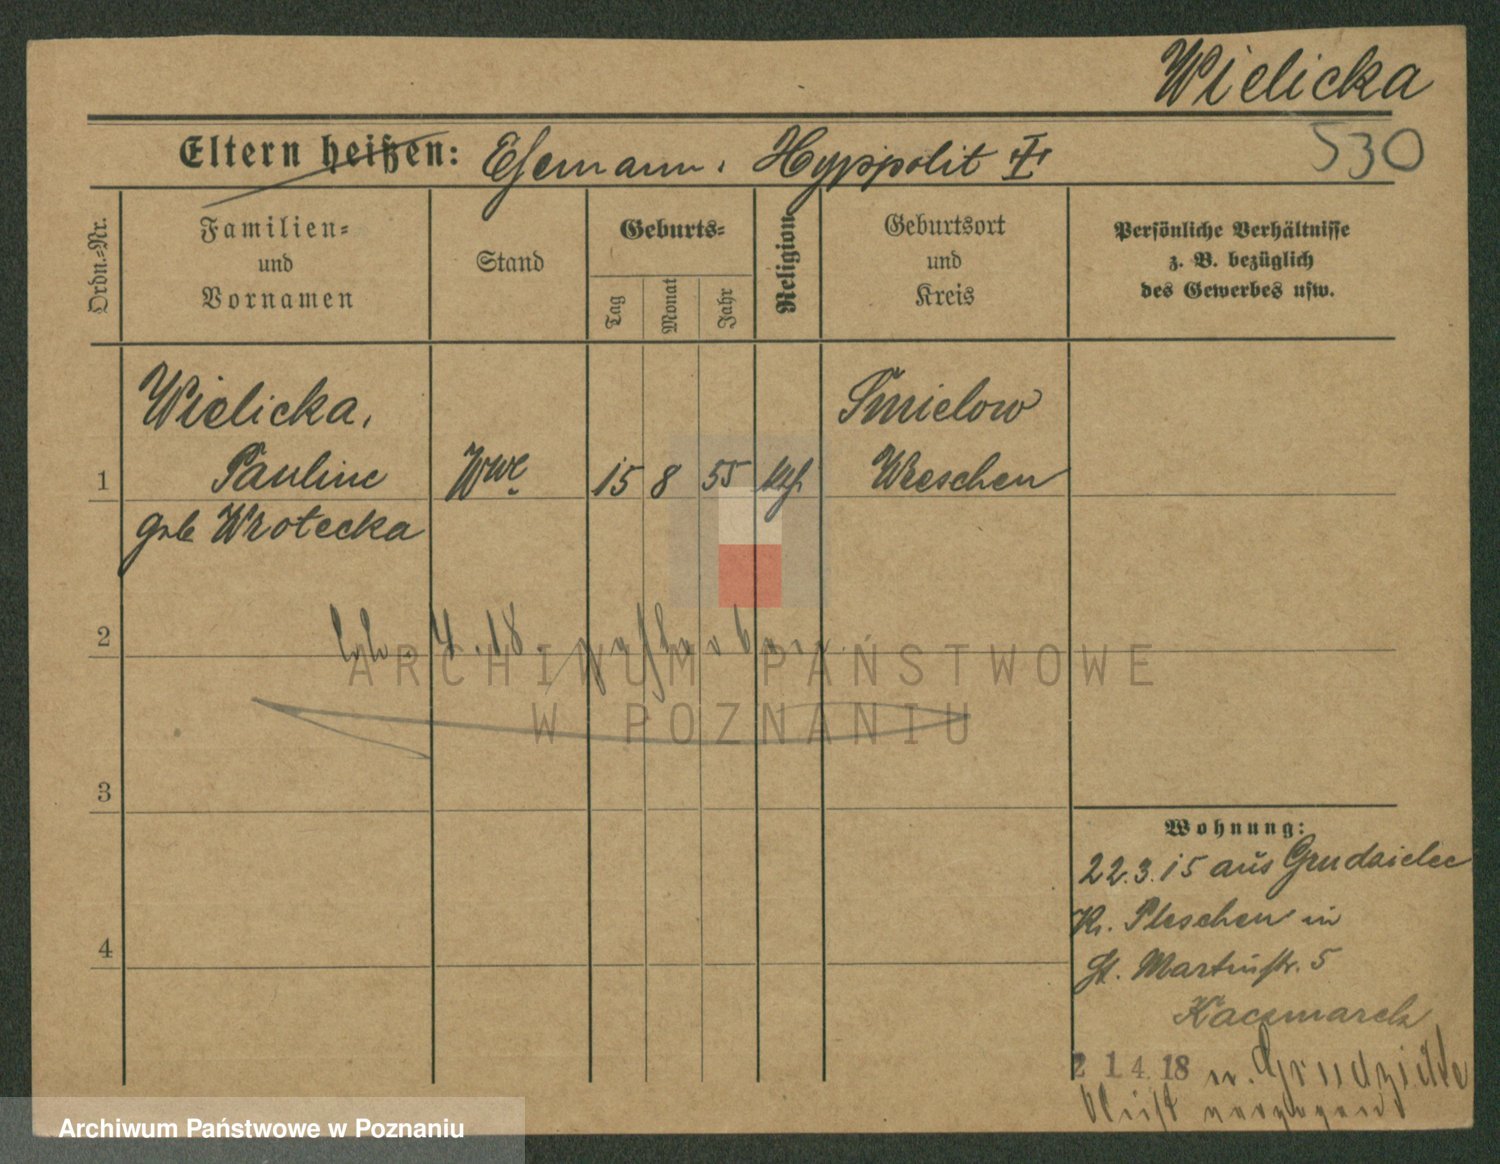 Wielicka
530
Eltern heißen: Ehemann: Hyppolit †
Ordn.-Nr.
Familien-
und
Vornamen
Stand
Geburts-
Tag
Monat
Jahr
Religion
Geburtsort
und
Kreis
Persönliche Verhältnisse
z. B. bezüglich
des Gewerbes usw.
Wielicka,
Smielow
1 Pauline Wwe 15 8 55 kth Wreschen
geb Wrotecka
2
4. 18.
ARCHIWUM PAŃSTWOWE
W POZNANIU
3
4
Wohnung:
22.3.15 aus Grudzielec
Kr. Pleschen in
St. Martinstr. 5
Kaczmarek
21.4.18 n. Grudzielec
verzogen
Archiwum Państwowe w Poznaniu